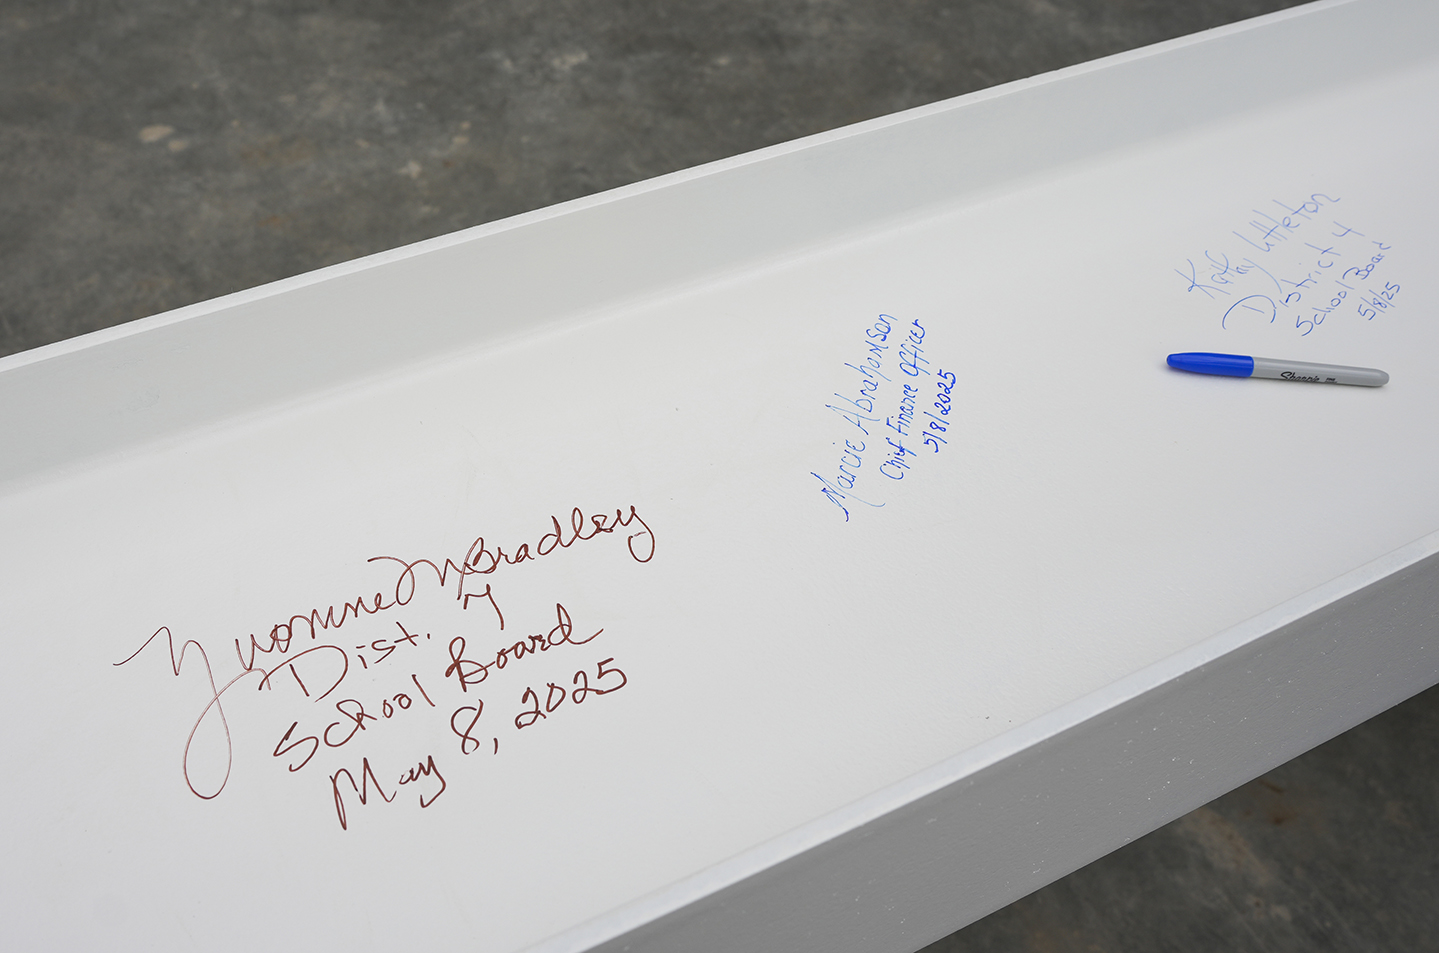 Yvonne M Bradley
Dist. 7
School Board
May 8, 2025
Marcie Abrahamson
Chief Finance Officer
5/8/2025
Kathy Littleton
District 4
School Board
5/8/25
Sharpie